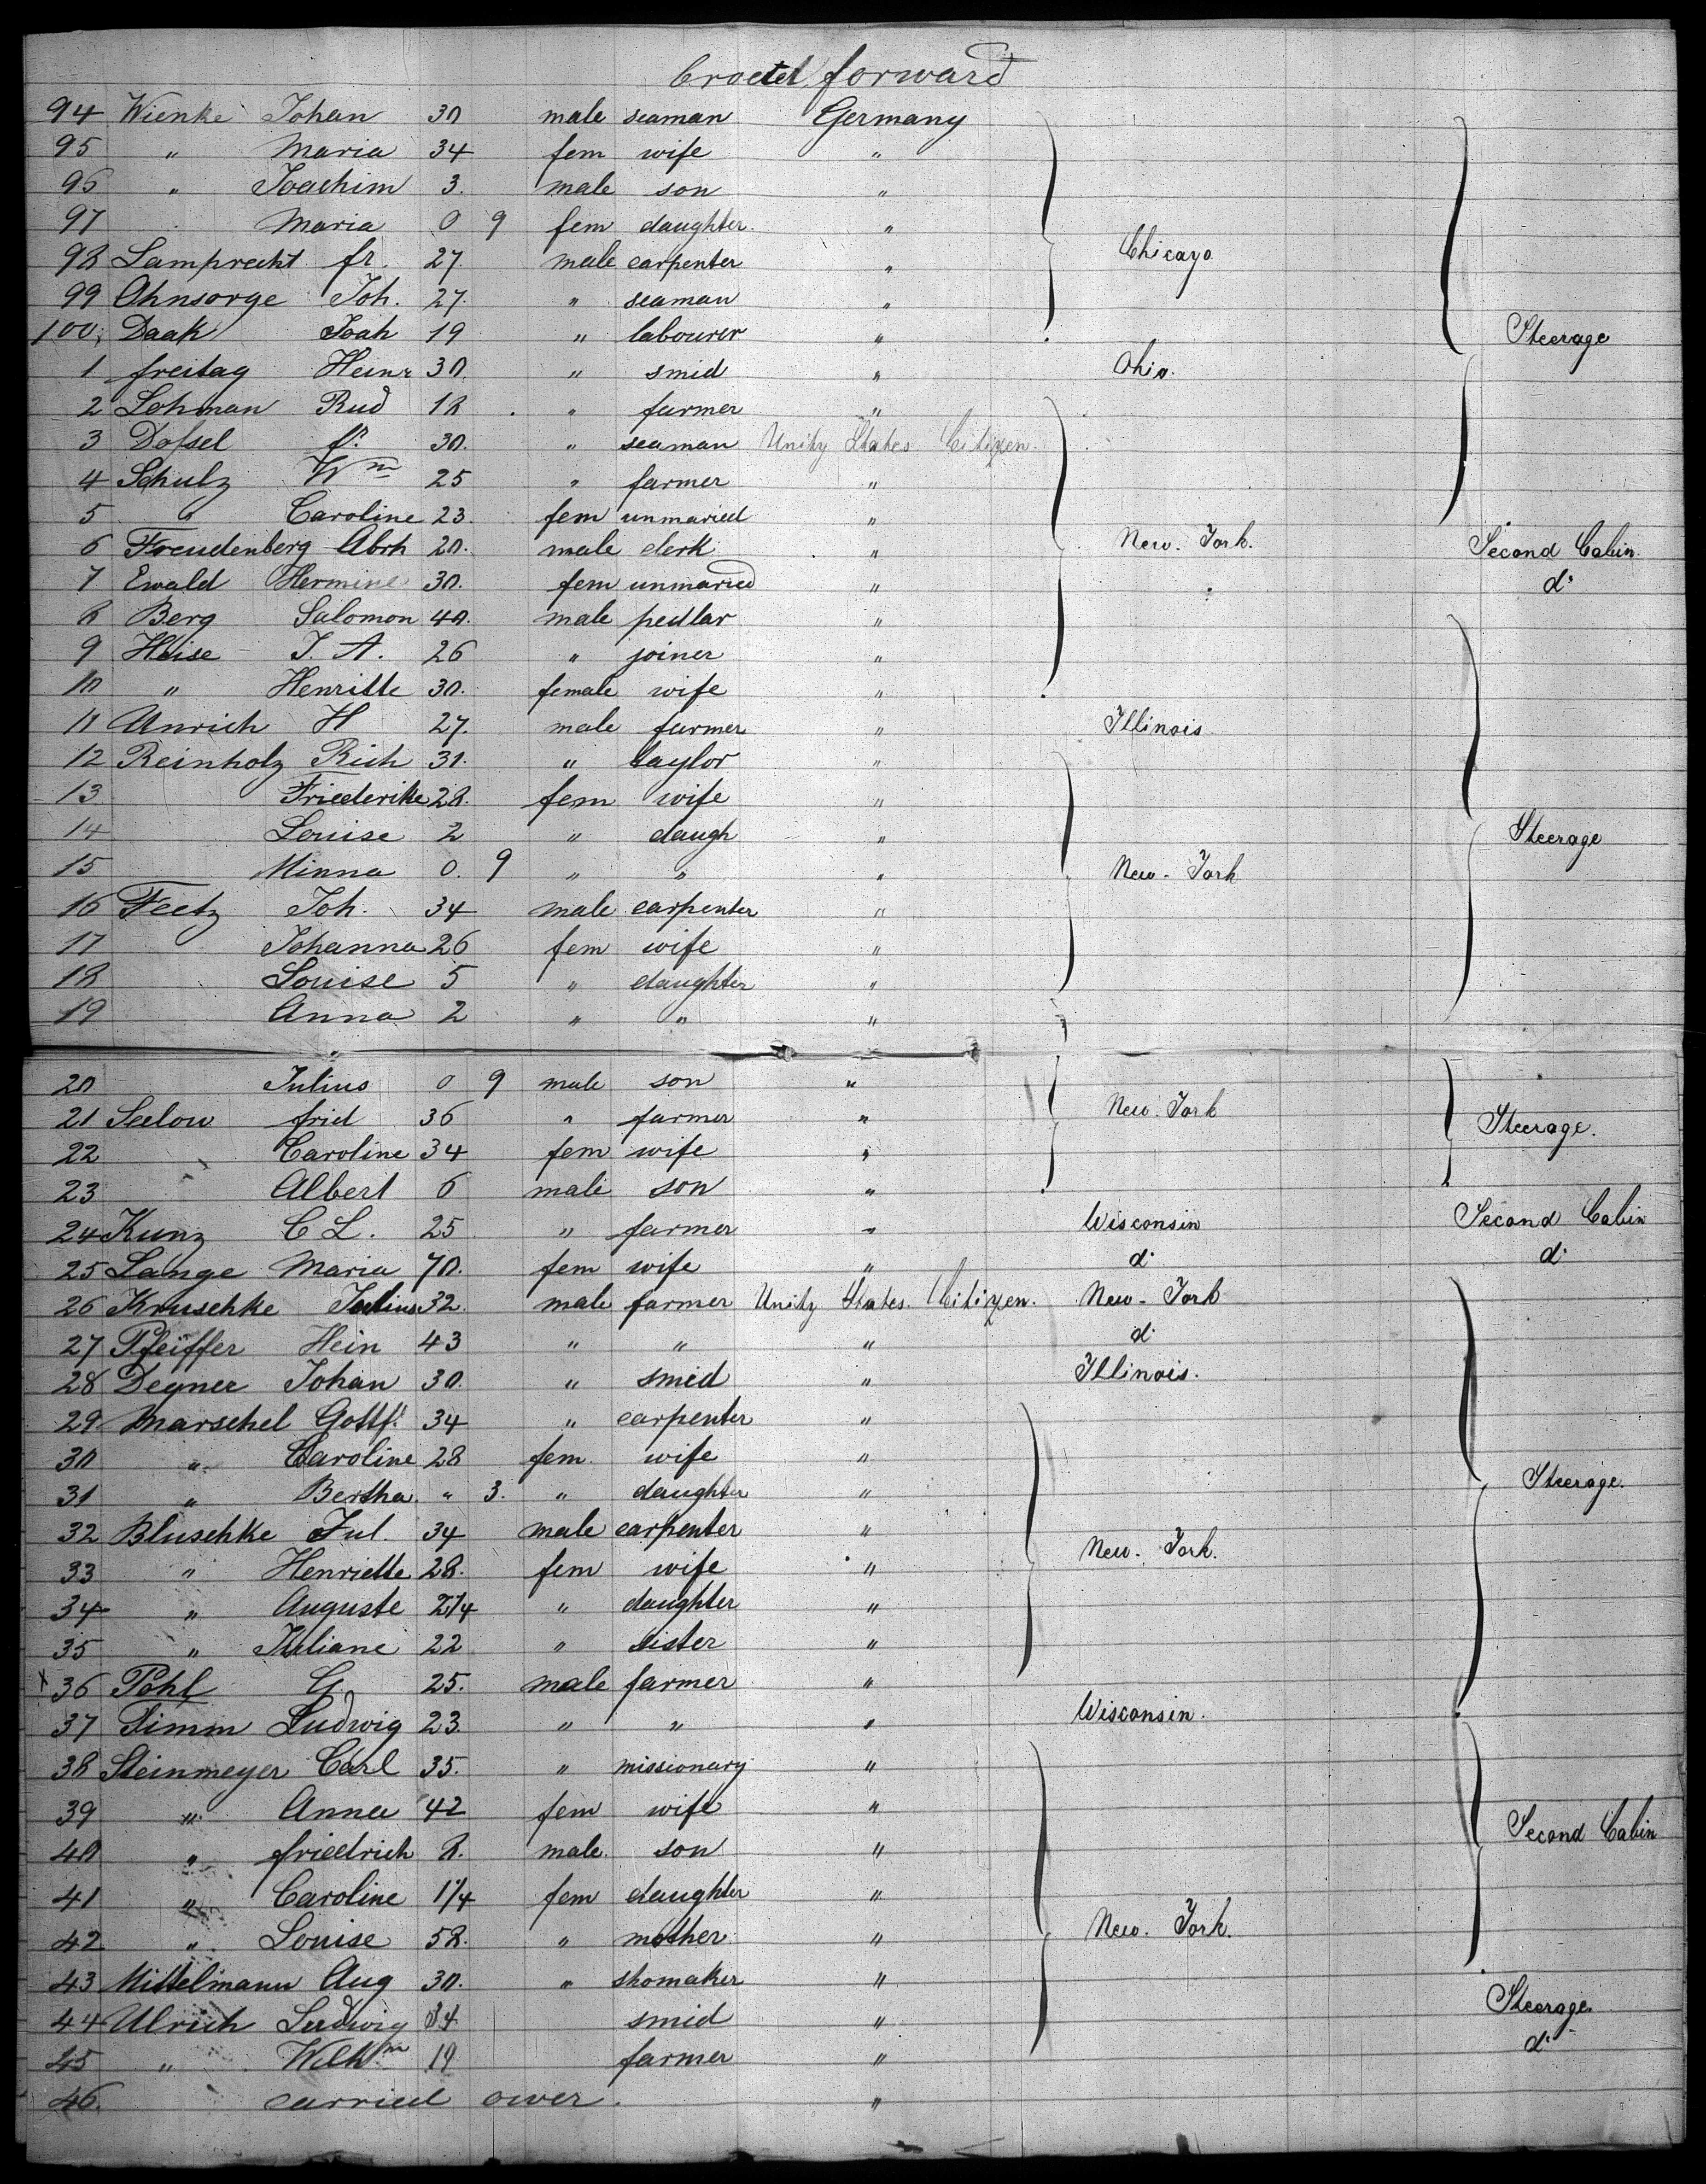 forward
94 Wienke Johan 30 male seaman Germany
95 " Maria 34 fem wife "
96 " Joachim 3. male son "
97 Maria 0 9 fem daughter. "
98 Lamprecht fr. 27 male carpenter " Chicago
99 Ohnsorge Joh. 27. " seaman "
100. Daak Joah 19 " labourer " Steerage
1 freitag Heinr 30. " smid " Ohio.
2 Lohman Rud 18 " farmer "
3 Dossel fr. 30. " seaman Unity States Citizen.
4 Schulz Wm 25 " farmer "
5 " Caroline 23. fem unmaried "
6 Freudenberg Abrh 20. male clerk " New. York. Second Cabin.
7 Ewald Hermine 30. fem unmaried " do
8 Berg Salomon 40. male pedlar "
9 Heise J. A. 26 " joiner "
10 " Henritte 30. female wife "
11 Unrich H 27. male farmer " Illinois.
12 Reinholz Rich 31. " taylor "
13 Friederike 28. fem wife "
14 Louise 2 " daugh " Steerage
15 Minna 0. 9 " " " New - York
16 Feetz Joh. 34 male carpenter "
17 Johanna 26 fem wife "
18 Louise 5 " daughter "
19 Anna 2 " " "
20 Julius 0 9 male son "
21 Seelow frid 36 " farmer " New. York Steerage.
22 Caroline 34 fem wife "
23 Albert 6 male son "
24 Kunz C L. 25 " farmer " Wisconsin Second Cabin
25 Lange Maria 70. fem wife " do do
26 Knuschke Julius 32. male farmer Unity States. Citizen. New - York
27 Pfeiffer Hein 43 " " " do
28 Degner Johan 30. " smid " Illinois.
29 Marschel Gottf. 34 " carpenter "
30 " Caroline 28 fem. wife "
31 " Bertha. " 3. " daughter " Steerage.
32 Bluschke Jul. 34 male carpenter "
33 " Henriette 28. fem wife " New. York.
34 " Auguste 2 1/4 " daughter "
35 " Juliane 22 " sister "
x 36 Pohl G. 25. male farmer "
37 Timm Ludwig 23. " " " Wisconsin.
38 Steinmeyer Carl 35. " missionary "
39 " Anna 42 fem wife "
40 " friedrich 8. male. son " Second Cabin
41 " Caroline 1 1/4 fem daughter "
42 " Louise 58. " mother. " New. York.
43 Mittelmann Aug 30. " shomaker "
44 Ulrich Ludwig 34 smid " Steerage.
45 " Wilhm 19 farmer " do
46. carried over. "